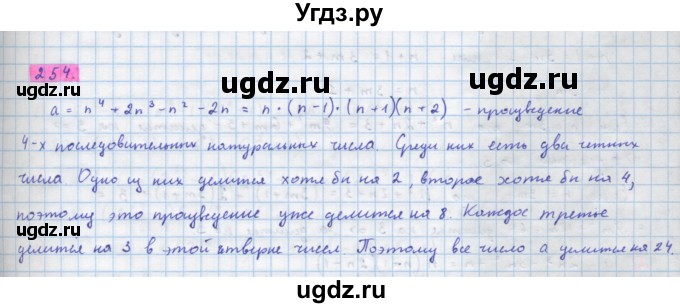 Угдз.ру
ugdz.ru ugdz.ru ugdz.ru
254.
a = n⁴ + 2n³ - n² - 2n = n · (n-1) · (n+1)(n+2) - произведение
4-х последовательных натуральных числа. Среди них есть два четных
числа. Одно из них делится хотя бы на 2, второе хотя бы на 4,
поэтому это произведение уже делится на 8. Каждое третье
делится на 3 в этой четверке чисел. Поэтому все число a делится на 24.
ugdz.ru ugdz.ru ugdz.ru
ugdz.ru ugdz.ru ugdz.ru